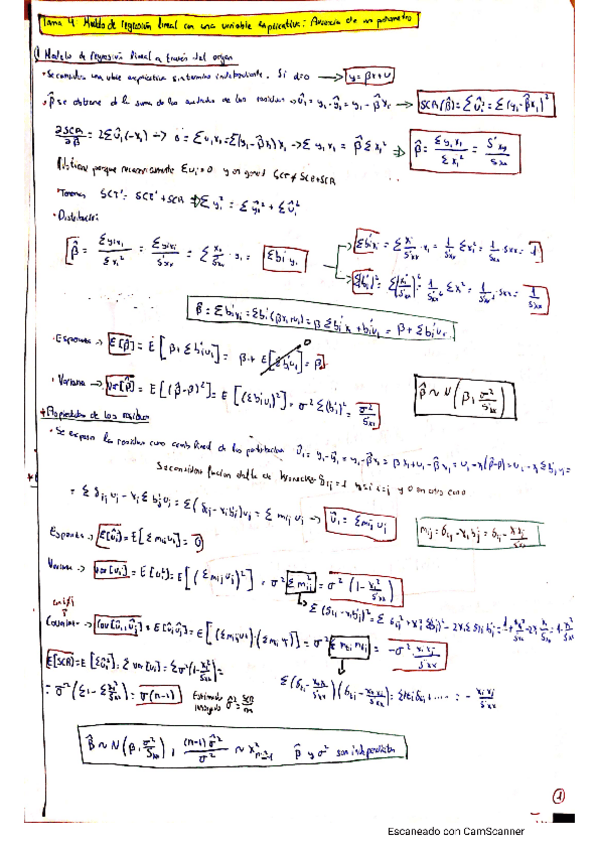 Tema 4 Modelo de regresión lineal con una variable explicativa: Ausencia de un parámetro
1) Modelo de regresión lineal a través del origen
· Se considera una vble explicativa sin término independiente. Si β₀=0 → y = βx + u
· β̂ se obtiene de la suma de los cuadrados de los residuos → ûᵢ = yᵢ - ŷᵢ = yᵢ - β̂xᵢ → SCR(β̂) = Σûᵢ² = Σ(yᵢ - β̂xᵢ)²
∂SCR/∂β = 2Σûᵢ(-xᵢ) → 0 = Σûᵢxᵢ = Σ(yᵢ - β̂xᵢ)xᵢ → Σyᵢxᵢ = β̂Σxᵢ² ⇒ β̂ = Σyᵢxᵢ / Σxᵢ² = S'xy / S'xx
porque necesariamente Σuᵢ≠0 y en general SCT ≠ SCE+SCR
· Tenemos SCT' = SCE' + SCR ⇒ Σyᵢ² = Σŷᵢ² + Σûᵢ²
· Distribución
β̂ = Σyᵢxᵢ / Σxᵢ² = Σyᵢxᵢ / S'xx = Σ xᵢ/S'xx · yᵢ = Σbᵢ'yᵢ
→ Σbᵢ'xᵢ = Σ xᵢ/S'xx · xᵢ = 1/S'xx Σxᵢ² = 1/S'xx · S'xx = 1
→ Σ(bᵢ')² = Σ(xᵢ/S'xx)² = 1/S'xx² · Σxᵢ² = 1/S'xx² · S'xx = 1/S'xx
β̂ = Σbᵢ'yᵢ = Σbᵢ'(βxᵢ+uᵢ) = βΣbᵢ'xᵢ + Σbᵢ'uᵢ = β + Σbᵢ'uᵢ
· Esperanza → E[β̂] = E[β + Σbᵢ'uᵢ] = β + E[Σbᵢ'uᵢ] = β
0
· Varianza → var[β̂] = E[(β̂-β)²] = E[(Σbᵢ'uᵢ)²] = σ²Σ(bᵢ')² = σ²/S'xx
β̂ ~ N(β, σ²/S'xx)
Propiedades de los residuos
· Se expresa los residuos como comb lineal de las perturbaciones ûᵢ = yᵢ - ŷᵢ = yᵢ - β̂xᵢ = βxᵢ + uᵢ - β̂xᵢ = uᵢ - xᵢ(β̂-β) = uᵢ - xᵢΣbⱼ'uⱼ =
Se considera función delta de Kronecker δᵢⱼ = 1 si i=j y 0 en otro caso
= Σδᵢⱼuⱼ - xᵢΣbⱼ'uⱼ = Σ(δᵢⱼ - xᵢbⱼ')uⱼ = Σmᵢⱼuⱼ → ûᵢ = Σmᵢⱼuⱼ
mᵢⱼ = δᵢⱼ - xᵢbⱼ' = δᵢⱼ - xᵢxⱼ/S'xx
Esperanza → E[ûᵢ] = E[Σmᵢⱼuⱼ] = 0
Varianza → var[ûᵢ] = E[ûᵢ²] = E[(Σmᵢⱼuⱼ)²] = σ²Σmᵢⱼ² = σ²(1 - xᵢ²/S'xx)
con i≠j
Covarianza → Cov[ûᵢ,ûⱼ] = E[ûᵢûⱼ] = = σ² = -σ² xᵢxⱼ/S'xx
E[SCR] = E[Σûᵢ²] = Σvar[ûᵢ] = Σσ²(1 - xᵢ²/S'xx) =
= σ²(Σ1 - Σxᵢ²/S'xx) = σ²(n-1)
Estimador insesgado
β̂ ~ N(β, σ²/S'xx), (n-1)σ̂²/σ² ~ χ²n-1 β̂ y σ̂² son independientes
1
Escaneado con CamScanner